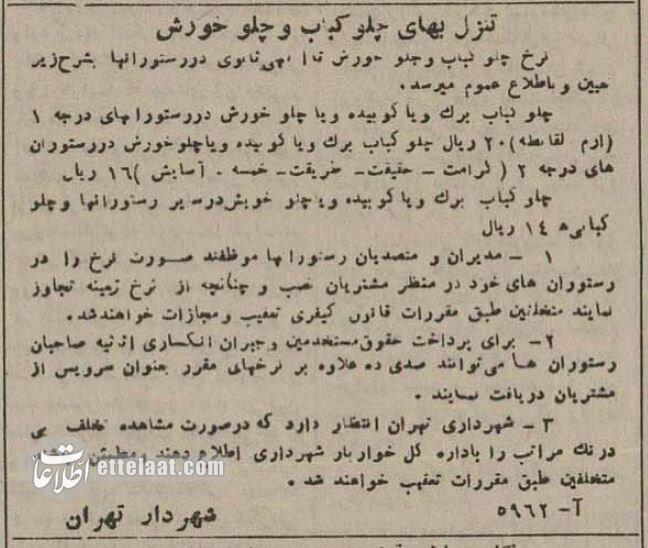 تنزل بهای چلو کباب و چلو خورش
نرخ چلو کباب وچلو خورش تا ثانوی دررستورانها بشرح زیر
تعیین و باطلاع عموم میرسد.
چلو کباب برك ویا کوبیده ویا چلو خورش دررستورانهای درجه ۱
(ارم لقانطه) ۲۰ ریال چلو کباب برك ویا کوبیده ویاچلوخورش دررستوران
های درجه ۲ (کرامت - حقیقت - طریقت - خمسه - آسایش) ۱۶ ریال
چلو کباب برك ویا کوبیده ویا چلو خورش درسایر رستورانها وچلو
کبابی‌ها ۱۴ ریال
۱ - مدیران و متصدیان رستورانها موظفند صورت نرخ را در
رستوران های خود در منظر مشتریان نصب و چنانچه از نرخ تجاوز
نمایند متخلفین طبق مقررات قانون کیفری تعقیب و مجازات خواهندشد.
۲- برای پرداخت حقوق مستخدمین وجبران انکساری اثاثیه صاحبان
رستوران ها می‌توانند صدی ده علاوه بر نرخهای مقرر بعنوان سرویس از
مشتریان دریافت نمایند.
۳ - شهرداری تهران انتظار دارد که درصورت مشاهده تخلف بی
درنك مراتب را باداره کل خواربار شهرداری اطلاع دهند
متخلفین طبق مقررات تعقیب خواهند شد.
آ- ۵۹۶۲
شهردار تهران
اطلاعات ettelaat.com